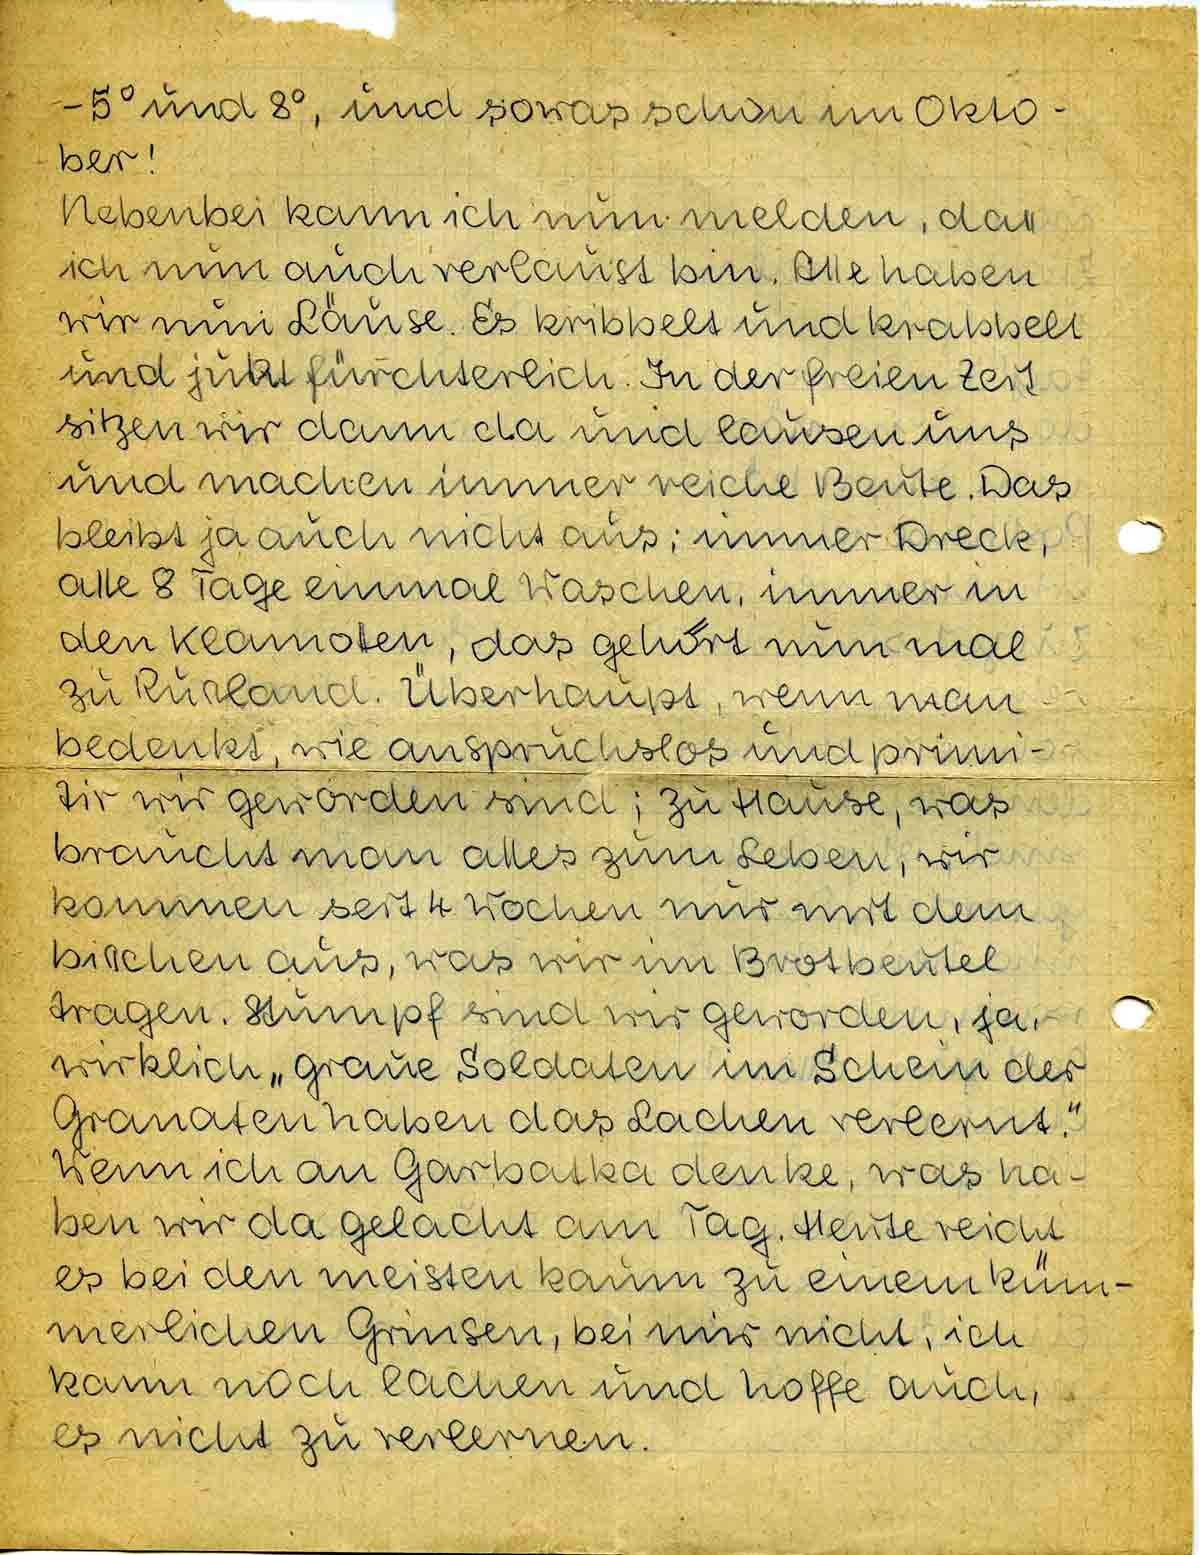 -5° und 8°, und sowas schon im Okto-
ber!
Nebenbei kann ich nun melden, daß
ich nun auch verlaust bin. Alle haben
wir nun Läuse. Es kribbelt und krabbelt
und jukt fürchterlich. In der freien Zeit
sitzen wir dann da und lausen uns
und machen immer reiche Beute. Das
bleibt ja auch nicht aus; immer Dreck,
alle 8 Tage einmal Waschen, immer in
den Klamoten, das gehört nun mal
zu Rußland. Überhaupt, wenn man
bedenkt, wie anspruchslos und primi-
tiv wir geworden sind; zu Hause, was
braucht man alles zum Leben, wir
kommen seit 4 Wochen nur mit dem
bißchen aus, was wir im Brotbeutel
tragen. Stumpf sind wir geworden, ja,
wirklich „graue Soldaten im Schein der
Granaten haben das Lachen verlernt."
Wenn ich an Garbatka denke, was ha-
ben wir da gelacht am Tag. Heute reicht
es bei den meisten kaum zu einem küm-
merlichen Grinsen, bei mir nicht, ich
kann noch lachen und hoffe auch,
es nicht zu verlernen.